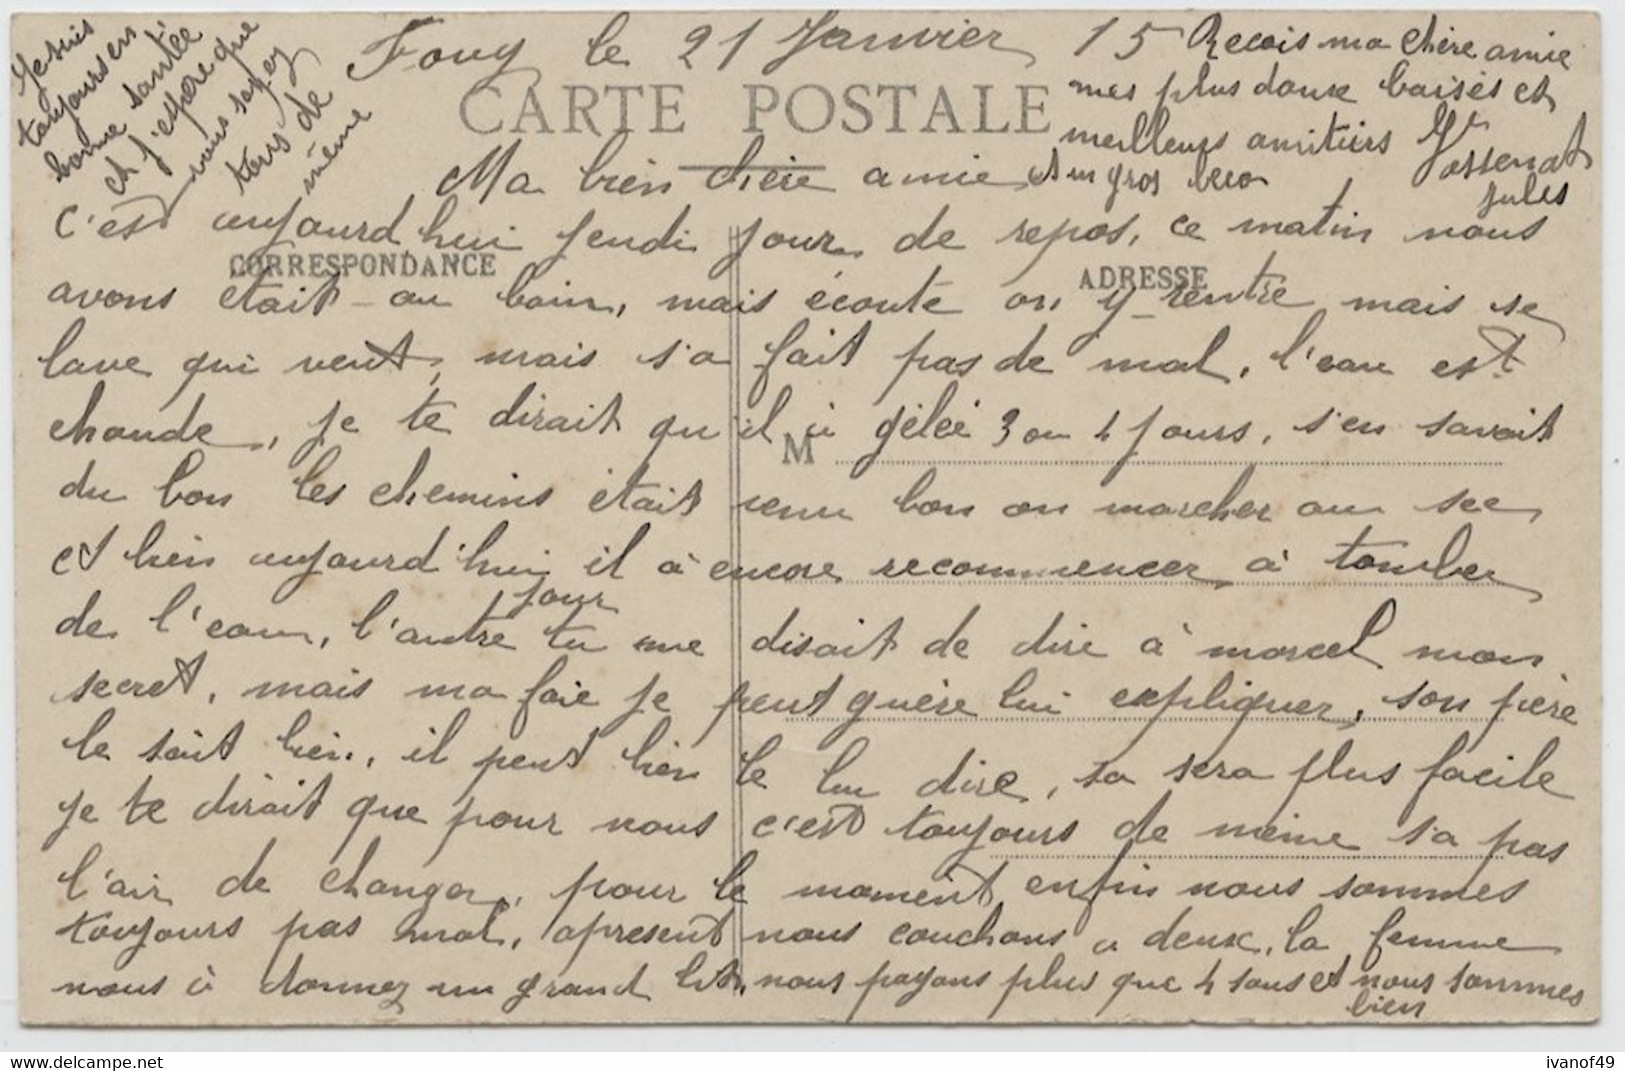 Foug le 21 Janvier 15
CARTE POSTALE
Ma bien chère amie
c'est aujourd'hui Jeudi jour de repos, ce matin nous
CORRESPONDANCE
ADRESSE
avons était au bain, mais écoute on y rentre mais se
lave qui veut, mais s'a fait pas de mal, l'eau est
chaude, je te dirait qu'il à gélée 3 ou 4 jours, s'en savait
M
du bon les chemins était venu bon on marcher au sec
et bien aujourd'hui il à encore recommencer à tomber
de l'eau, l'autre jour tu me disait de dire à marcel mon
secret, mais ma foie je peut guère lui expliquer, son père
le sait bien, il peut bien le lui dire, sa sera plus facile
je te dirait que pour nous c'est toujours de même s'a pas
l'air de changer, pour le moment enfin nous sommes
toujours pas mal, apresent nous couchons a deux, la femme
nous à donnez un grand lit, nous payons plus que 4 sous et nous sommes
bien
Je suis
toujours en
bonne santée
et j'espère que
vous soyez
tous de
même
Recois ma chère amie
mes plus doux baisés et
meilleurs amitiers
et un gros beco
Jules
ivanof49